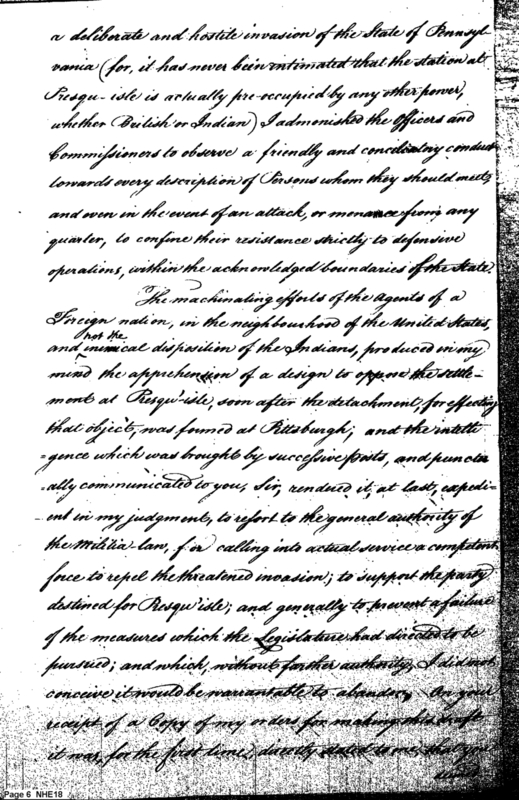 a deliberate and hostile invasion of the State of Pennsyl
vania (for, it has never been intimated that the station at
Presqu-isle is actually pre-occupied by any other power,
whether British or Indian) I admonished the Officers and
Commissioners to observe a friendly and conciliatory conduct
towards every description of Persons whom they should meet,
and even in the event of an attack, or menace from any
quarter, to confine their resistance strictly to defensive
operations, within the acknowledged boundaries of the State.
The machinating efforts of the agents of a
Foreign nation, in the neighbourhood of the United States,
not the
and inimical disposition of the Indians, produced in my
mind the apprehension of a design to oppose the settle-
ment at Presqu'isle, soon after the detachment, for effecting
that object, was formed at Pittsburgh; and the intelli
=gence which was brought by successive posts, and punctu
ally communicated to you, Sir, rendered it, at last, expedi-
-ent in my judgment, to resort to the general authority of
the Militia-law, for calling into actual service a competent
force to repel the threatened invasion; to support the party
destined for Presqu'isle; and generally to prevent a failure
of the measures which the Legislature had directed to be
pursued; and which, without further authority, I did not
conceive it would be warrantable to abandon. On your
receipt of a Copy of my orders for making this draft
it was, for the first time, directly stated to me, that you
Page 6 NHE18